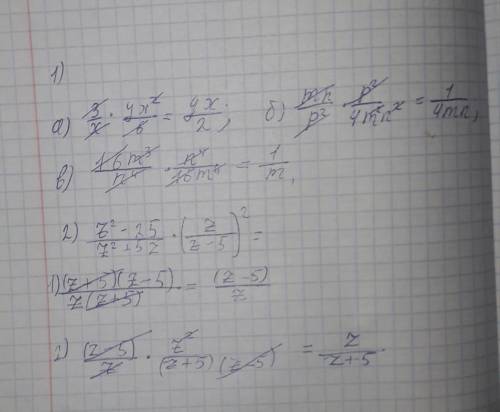 1)
а) 3/x · 4x²/6 = 4x/2; б) mn/p² · p²/4m²n² = 1/4mn,
в) 16m³/n⁴ · n⁴/16m⁴ = 1/m,
2) z² - 25/z² + 5z · (z/z - 5)² =
1) (z + 5)(z - 5)/z(z + 5) = (z - 5)/z
2) (z - 5)/z · z²/(z + 5)(z - 5) = z/z + 5